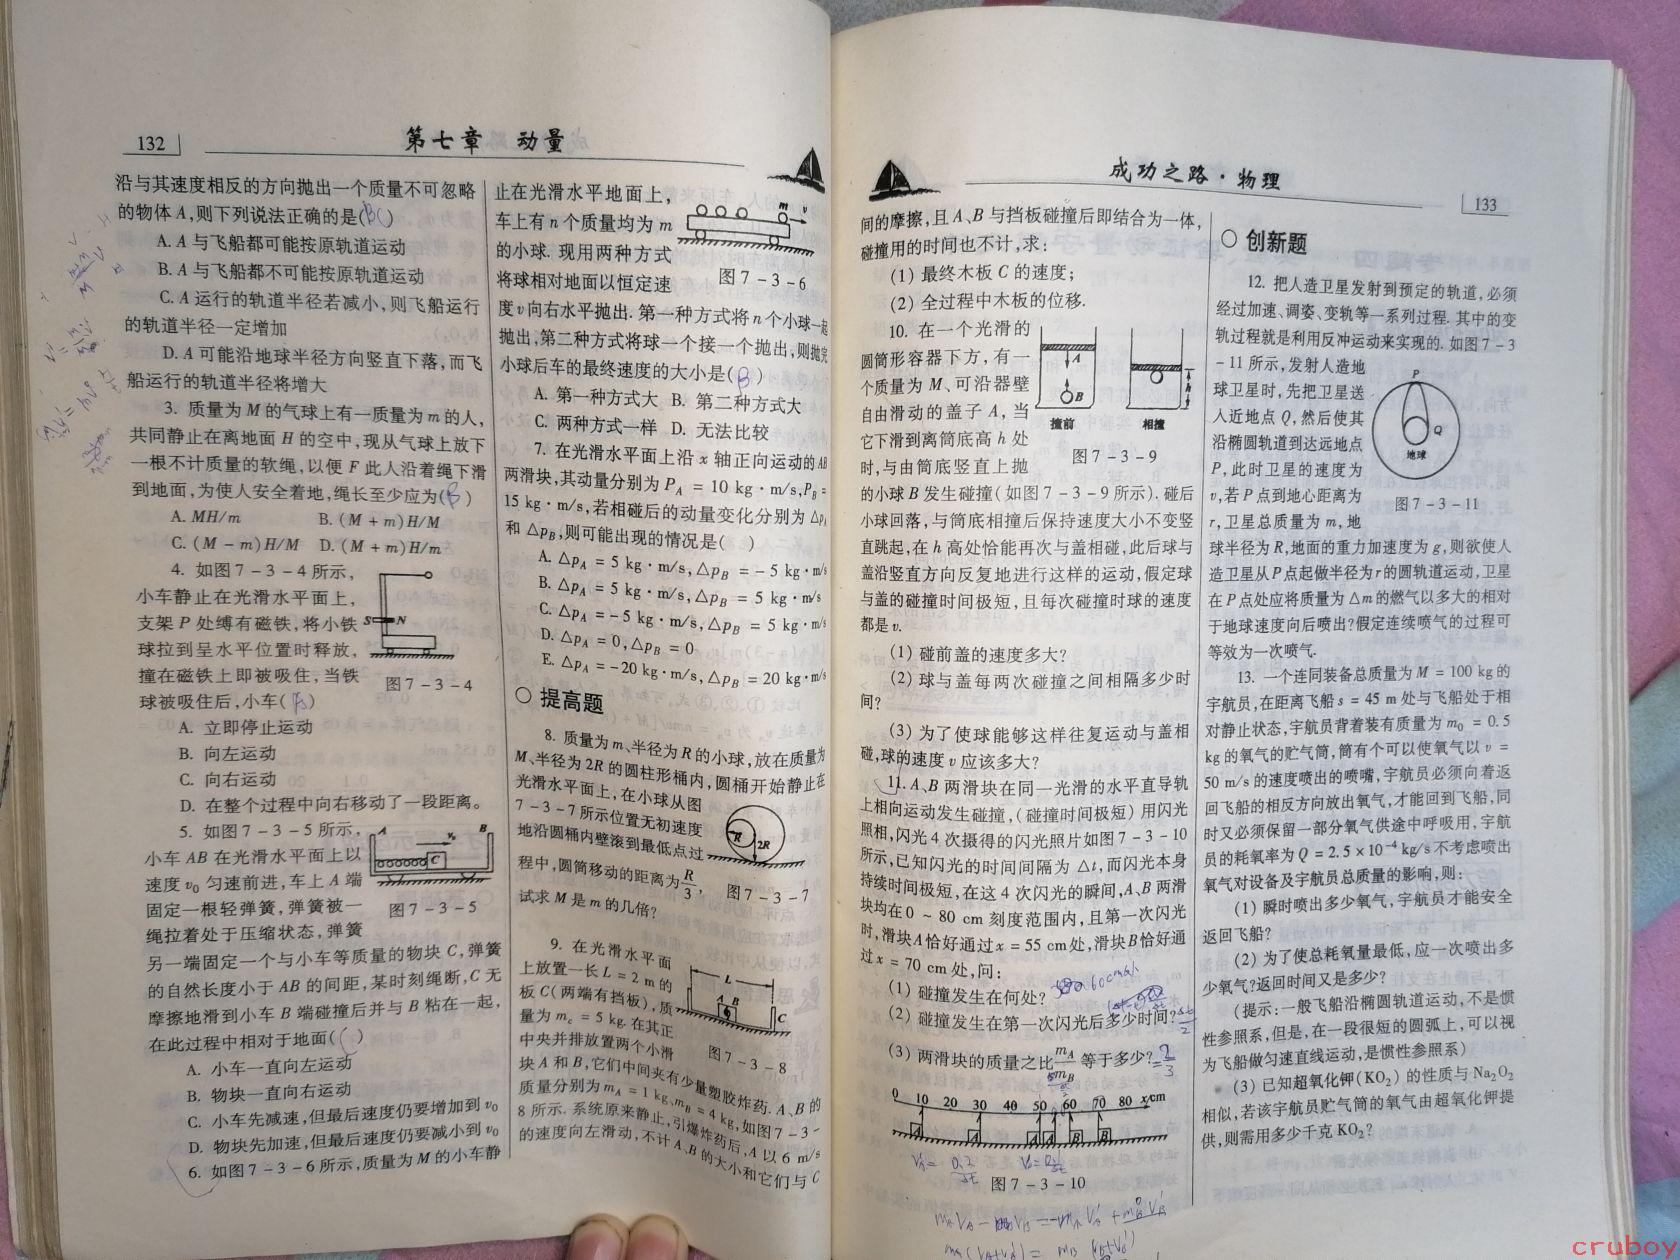 132
第七章 动量
沿与其速度相反的方向抛出一个质量不可忽略
的物体A,则下列说法正确的是( )
A. A与飞船都可能按原轨道运动
B. A与飞船都不可能按原轨道运动
C. A运行的轨道半径若减小,则飞船运行
的轨道半径一定增加
D. A可能沿地球半径方向竖直下落,而飞
船运行的轨道半径将增大
3. 质量为M的气球上有一质量为m的人,
共同静止在离地面H的空中,现从气球上放下
一根不计质量的软绳,以便F此人沿着绳下滑
到地面,为使人安全着地,绳长至少应为(B)
A. MH/m B. (M+m)H/M
C. (M-m)H/M D. (M+m)H/m
4. 如图7-3-4所示,
小车静止在光滑水平面上,
支架P处缚有磁铁,将小铁
球拉到呈水平位置时释放,
撞在磁铁上即被吸住,当铁
球被吸住后,小车(A)
S N
图7-3-4
A. 立即停止运动
B. 向左运动
C. 向右运动
D. 在整个过程中向右移动了一段距离。
5. 如图7-3-5所示,
小车AB在光滑水平面上以
速度v0匀速前进,车上A端
固定一根轻弹簧,弹簧被一
绳拉着处于压缩状态,弹簧
A v0 B
C
图7-3-5
另一端固定一个与小车等质量的物块C,弹簧
的自然长度小于AB的间距,某时刻绳断,C无
摩擦地滑到小车B端碰撞后并与B粘在一起,
在此过程中相对于地面( )
A. 小车一直向左运动
B. 物块一直向右运动
C. 小车先减速,但最后速度仍要增加到v0
D. 物块先加速,但最后速度仍要减小到v0
6. 如图7-3-6所示,质量为M的小车静
止在光滑水平地面上,
车上有n个质量均为m
的小球. 现用两种方式
将球相对地面以恒定速
m v
图7-3-6
度v向右水平抛出. 第一种方式将n个小球一起
抛出,第二种方式将球一个接一个抛出,则抛完
小球后车的最终速度的大小是(B)
A. 第一种方式大 B. 第二种方式大
C. 两种方式一样 D. 无法比较
7. 在光滑水平面上沿x轴正向运动的AB
两滑块,其动量分别为PA=10 kg·m/s,PB=
15 kg·m/s,若相碰后的动量变化分别为△pA
和△pB,则可能出现的情况是( )
A. △pA=5 kg·m/s,△pB=-5 kg·m/s
B. △pA=5 kg·m/s,△pB=5 kg·m/s
C. △pA=-5 kg·m/s,△pB=5 kg·m/s
D. △pA=0,△pB=0
E. △pA=-20 kg·m/s,△pB=20 kg·m/s
○ 提高题
8. 质量为m、半径为R的小球,放在质量为
M、半径为2R的圆柱形桶内,圆桶开始静止在
光滑水平面上,在小球从图
7-3-7所示位置无初速度
地沿圆桶内壁滚到最低点过
程中,圆筒移动的距离为R/3,
试求M是m的几倍?
R 2R
图7-3-7
9. 在光滑水平面
上放置一长L=2 m的
板C(两端有挡板),质
量为mc=5 kg. 在其正
中央并排放置两个小滑
L
A B
C
图7-3-8
块A和B,它们中间夹有少量塑胶炸药. A、B的
质量分别为mA=1 kg、mB=4 kg,如图7-3-
8所示. 系统原来静止,引爆炸药后,A以6 m/s
的速度向左滑动,不计A、B的大小和它们与C
成功之路·物理
133
间的摩擦,且A、B与挡板碰撞后即结合为一体,
碰撞用的时间也不计,求:
(1) 最终木板C的速度;
(2) 全过程中木板的位移.
10. 在一个光滑的
圆筒形容器下方,有一
个质量为M、可沿器壁
自由滑动的盖子A,当
它下滑到离筒底高h处
时,与由筒底竖直上抛
A
B
h
撞前 相撞
图7-3-9
的小球B发生碰撞(如图7-3-9所示). 碰后
小球回落,与筒底相撞后保持速度大小不变竖
直跳起,在h高处恰能再次与盖相碰,此后球与
盖沿竖直方向反复地进行这样的运动,假定球
与盖的碰撞时间极短,且每次碰撞时球的速度
都是v.
(1) 碰前盖的速度多大?
(2) 球与盖每两次碰撞之间相隔多少时
间?
(3) 为了使球能够这样往复运动与盖相
碰,球的速度v应该多大?
11. A、B两滑块在同一光滑的水平直导轨
上相向运动发生碰撞,(碰撞时间极短)用闪光
照相,闪光4次摄得的闪光照片如图7-3-10
所示,已知闪光的时间间隔为△t,而闪光本身
持续时间极短,在这4次闪光的瞬间,A、B两滑
块均在0~80 cm刻度范围内,且第一次闪光
时,滑块A恰好通过x=55 cm处,滑块B恰好通
过x=70 cm处,问:
(1) 碰撞发生在何处?
(2) 碰撞发生在第一次闪光后多少时间?
(3) 两滑块的质量之比mA/mB等于多少?
0 10 20 30 40 50 60 70 80 x/cm
A A A A B B
图7-3-10
○ 创新题
12. 把人造卫星发射到预定的轨道,必须
经过加速、调姿、变轨等一系列过程. 其中的变
轨过程就是利用反冲运动来实现的. 如图7-3
-11所示,发射人造地
球卫星时,先把卫星送
人近地点Q,然后使其
沿椭圆轨道到达远地点
P,此时卫星的速度为
v,若P点到地心距离为
r,卫星总质量为m,地
P
Q
地球
图7-3-11
球半径为R,地面的重力加速度为g,则欲使人
造卫星从P点起做半径为r的圆轨道运动,卫星
在P点处应将质量为△m的燃气以多大的相对
于地球速度向后喷出?假定连续喷气的过程可
等效为一次喷气.
13. 一个连同装备总质量为M=100 kg的
宇航员,在距离飞船s=45 m处与飞船处于相
对静止状态,宇航员背着装有质量为m0=0.5
kg的氧气的贮气筒,筒有个可以使氧气以v=
50 m/s的速度喷出的喷嘴,宇航员必须向着返
回飞船的相反方向放出氧气,才能回到飞船,同
时又必须保留一部分氧气供途中呼吸用,宇航
员的耗氧率为Q=2.5×10-4 kg/s不考虑喷出
氧气对设备及宇航员总质量的影响,则:
(1) 瞬时喷出多少氧气,宇航员才能安全
返回飞船?
(2) 为了使总耗氧量最低,应一次喷出多
少氧气?返回时间又是多少?
(提示:一般飞船沿椭圆轨道运动,不是惯
性参照系,但是,在一段很短的圆弧上,可以视
为飞船做匀速直线运动,是惯性参照系)
(3) 已知超氧化钾(KO2)的性质与Na2O2
相似,若该宇航员贮气筒的氧气由超氧化钾提
供,则需用多少千克KO2?
cruboy